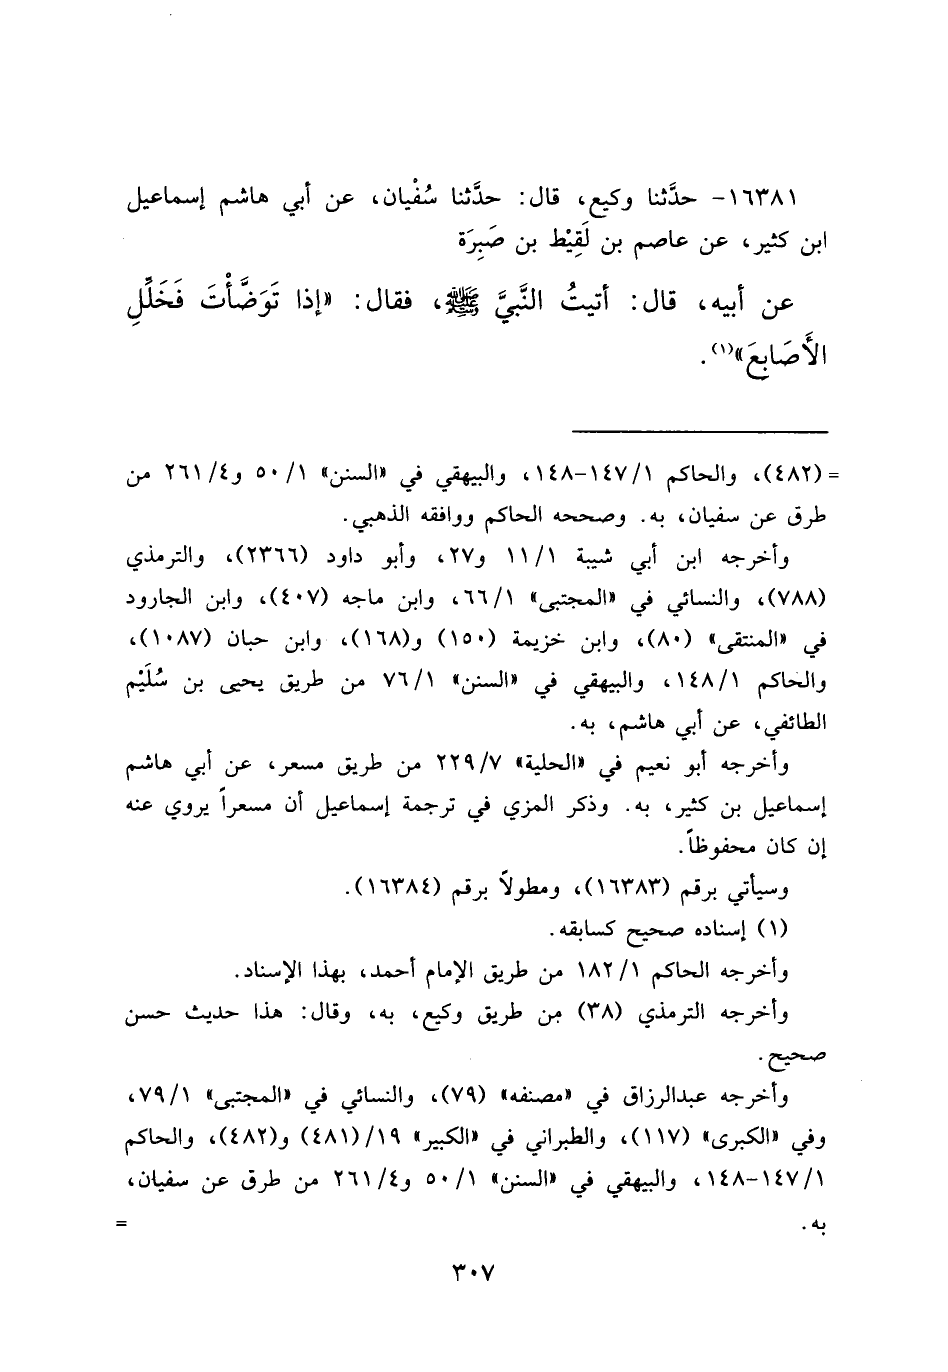 ١٦٣٨١- حدَّثنا وكيع، قال: حدَّثنا سُفْيان، عن أبي هاشم إسماعيل
ابن كثير، عن عاصم بن لَقِيْط بن صَبِرَة
عن أبيه، قال: أتيتُ النَّبيَّ ﷺ، فقال: «إذا تَوَضَّأْتَ فَخَلِّلِ
الأَصَابِعَ»(١).
= (٤٨٢)، والحاكم ١٤٧/١-١٤٨، والبيهقي في «السنن» ٥٠/١ و٢٦١/٤ من
طرق عن سفيان، به. وصححه الحاكم ووافقه الذهبي.
وأخرجه ابن أبي شيبة ١١/١ و٢٧، وأبو داود (٢٣٦٦)، والترمذي
(٧٨٨)، والنسائي في «المجتبى» ٦٦/١، وابن ماجه (٤٠٧)، وابن الجارود
في «المنتقى» (٨٠)، وابن خزيمة (١٥٠) و(١٦٨)، وابن حبان (١٠٨٧)،
والحاكم ١٤٨/١، والبيهقي في «السنن» ٧٦/١ من طريق يحيى بن سُلَيْم
الطائفي، عن أبي هاشم، به.
وأخرجه أبو نعيم في «الحلية» ٢٢٩/٧ من طريق مسعر، عن أبي هاشم
إسماعيل بن كثير، به. وذكر المزي في ترجمة إسماعيل أن مسعراً يروي عنه
إن كان محفوظاً.
وسيأتي برقم (١٦٣٨٣)، ومطولاً برقم (١٦٣٨٤).
(١) إسناده صحيح كسابقه.
وأخرجه الحاكم ١٨٢/١ من طريق الإمام أحمد، بهذا الإسناد.
وأخرجه الترمذي (٣٨) من طريق وكيع، به، وقال: هذا حديث حسن
صحيح.
وأخرجه عبدالرزاق في «مصنفه» (٧٩)، والنسائي في «المجتبى» ٧٩/١،
وفي «الكبرى» (١١٧)، والطبراني في «الكبير» ١٩/(٤٨١) و(٤٨٢)، والحاكم
١٤٧/١-١٤٨، والبيهقي في «السنن» ٥٠/١ و٢٦١/٤ من طرق عن سفيان،
به. =
٣٠٧